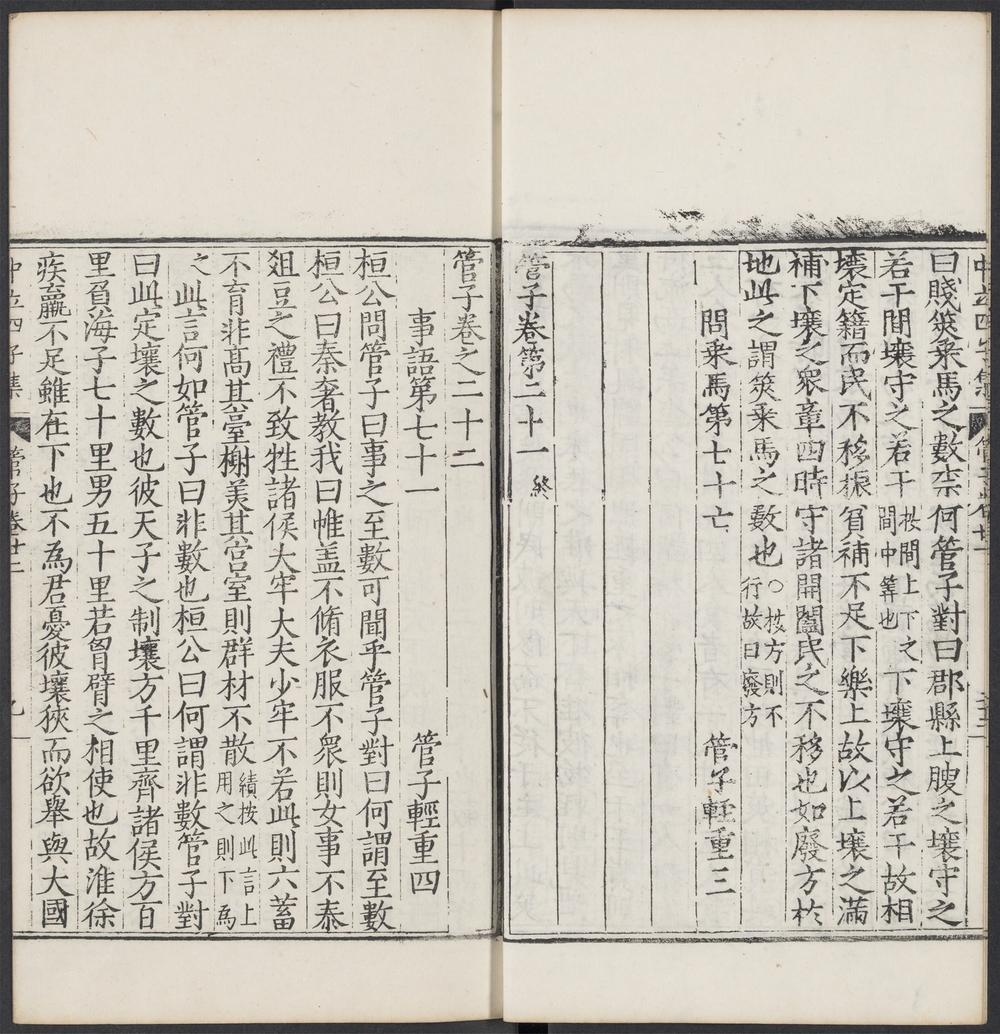 曰賤筴乘馬之數柰何管子對曰郡縣上臾之壤守之
若干間壤守之若干按間上下之間中筭也下壤守之若干故相
壤定籍而民不移振貧補不足下樂上故以上壤之滿
補下壤之衆章四時守諸開闔民之不移也如廢方於
地此之謂筴乘馬之數也○按方則不行故曰廢方
問乘馬第七十亡 管子輕重三
管子卷第二十一 終
管子卷之二十二
事語第七十一 管子輕重四
桓公問管子曰事之至數可聞乎管子對曰何謂至數
桓公曰秦奢教我曰帷盖不脩衣服不衆則女事不泰
俎豆之禮不致牲諸侯大牢大夫少牢不若此則六蓄
不育非髙其臺榭美其宮室則群材不散績按此言上用之則下為
之此言何如管子曰非數也桓公曰何謂非數管子對
曰此定壤之數也彼天子之制壤方千里齊諸侯方百
里負海子七十里男五十里若胷臂之相使也故淮徐
疾羸不足雖在下也不為君憂彼壤狹而欲舉與大國
中立四子集 管子卷廿二 九